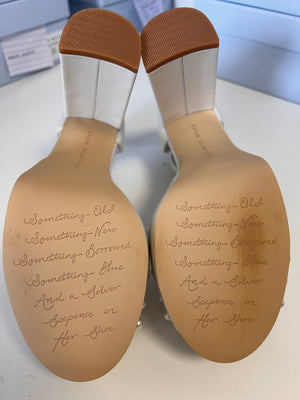 Something Old
Something New
Something Borrowed
Something Blue
And a Silver
Sixpence in
Her Shoe
Something Old
Something New
Something Borrowed
Something Blue
And a Silver
Sixpence in
Her Shoe